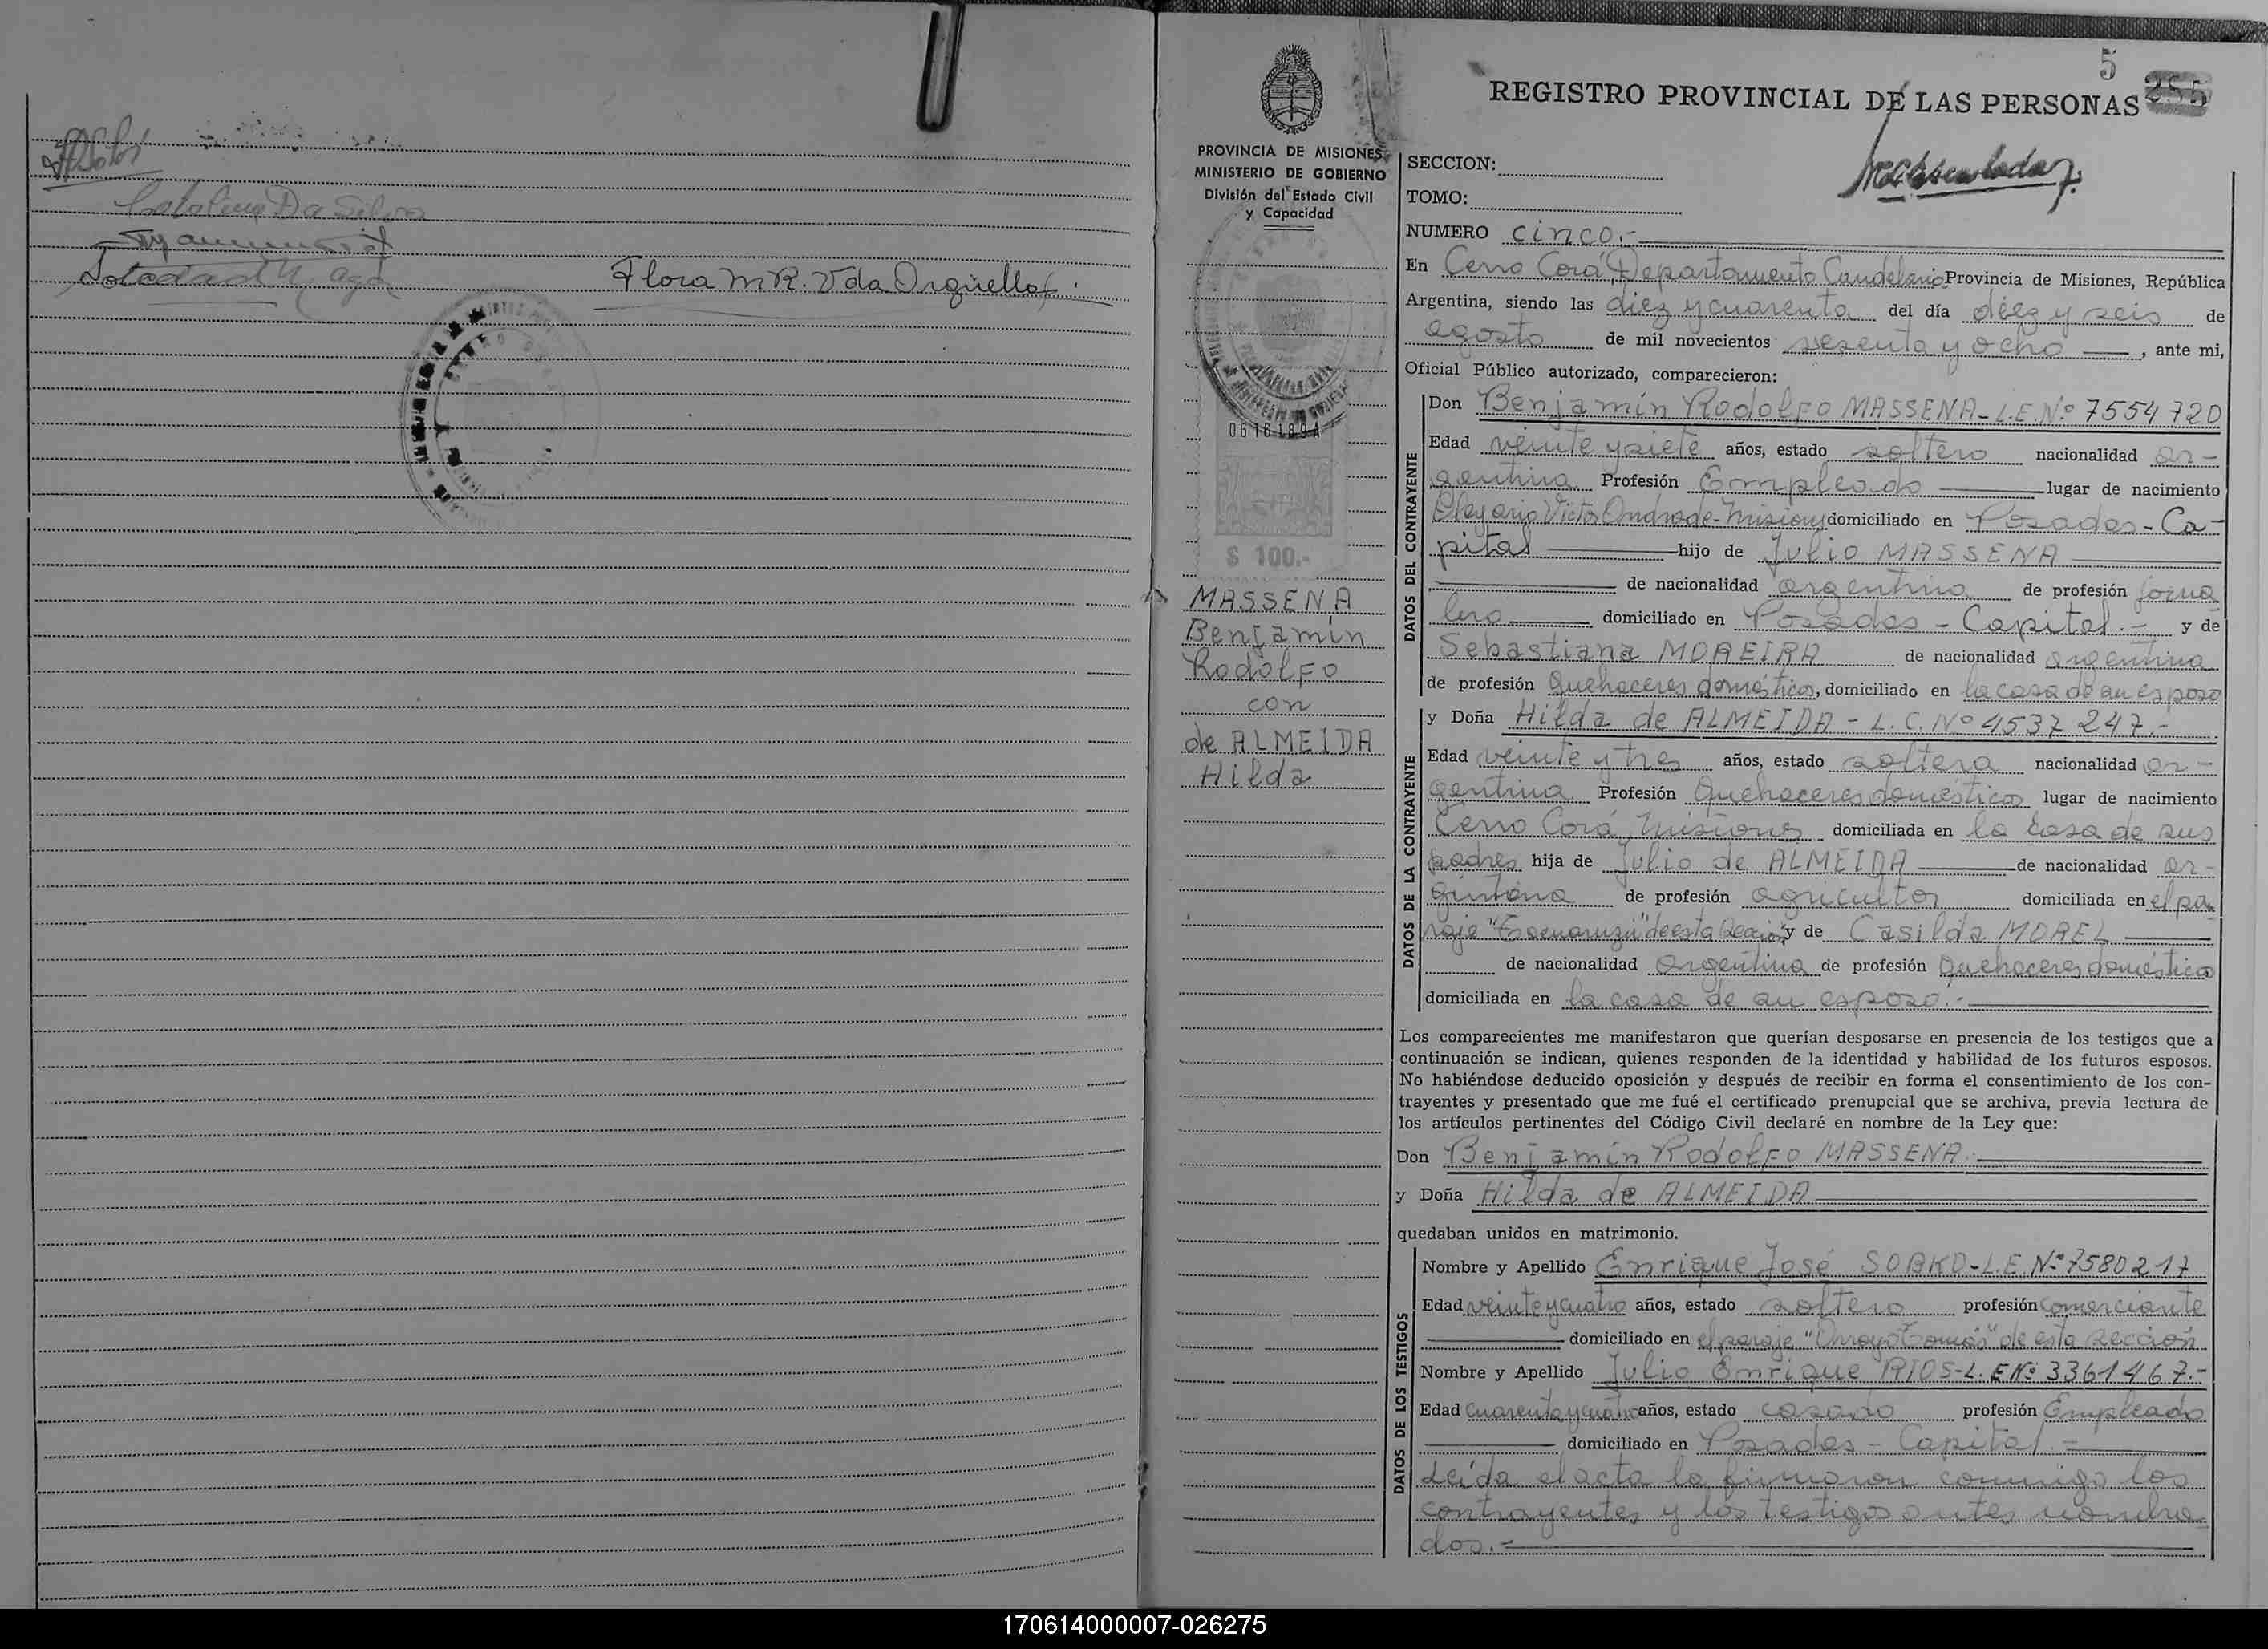 Catalina Da Silva
Flora M R. Vda Orguello
5
255
REGISTRO PROVINCIAL DE LAS PERSONAS
PROVINCIA DE MISIONES
MINISTERIO DE GOBIERNO
División del Estado Civil
y Capacidad
0616189A
$ 100.-
MASSENA
Benjamín
Rodolfo
con
de ALMEIDA
Hilda
SECCION:
TOMO:
NUMERO cinco.-
En Cerro Corá, Departamento Candelaria Provincia de Misiones, República
Argentina, siendo las diez y cuarenta del día diez y seis de
agosto de mil novecientos sesenta y ocho, ante mi,
Oficial Público autorizado, comparecieron:
DATOS DEL CONTRAYENTE
Don Benjamín Rodolfo MASSENA-L.E.Nº 7554720
Edad veinte y siete años, estado soltero nacionalidad ar-
gentina Profesión Empleado lugar de nacimiento
Olegario Victor Andrade-Misiones domiciliado en Posadas-Ca-
pital hijo de Julio MASSENA
de nacionalidad argentina de profesión jorna
lero domiciliado en Posadas - Capital.- y de
Sebastiana MOREIRA de nacionalidad argentina
de profesión Quehaceres domésticos, domiciliado en la casa de su esposo
DATOS DE LA CONTRAYENTE
y Doña Hilda de ALMEIDA - L.C.Nº 4537247.-
Edad veinte y tres años, estado soltera nacionalidad ar-
gentina Profesión Quehaceres domésticos lugar de nacimiento
Cerro Corá Misiones domiciliada en la casa de sus
padres hija de Julio de ALMEIDA de nacionalidad ar-
gintina de profesión agricultor domiciliada en el pa
raje de esta Sección y de Casilda MOREL
de nacionalidad Argentina de profesión Quehaceres domésticos
domiciliada en la casa de su esposo.-
Los comparecientes me manifestaron que querían desposarse en presencia de los testigos que a
continuación se indican, quienes responden de la identidad y habilidad de los futuros esposos.
No habiéndose deducido oposición y después de recibir en forma el consentimiento de los con-
trayentes y presentado que me fué el certificado prenupcial que se archiva, previa lectura de
los artículos pertinentes del Código Civil declaré en nombre de la Ley que:
Don Benjamín Rodolfo MASSENA.
y Doña Hilda de ALMEIDA
quedaban unidos en matrimonio.
DATOS DE LOS TESTIGOS
Nombre y Apellido Enrique José SOBKO-L.E.Nº 7580217
Edad veinte y cuatro años, estado soltero profesión comerciante
domiciliado en el paraje "Arroyo Tomás" de esta Sección
Nombre y Apellido Julio Enrique RIOS-L.E.Nº 3361467.-
Edad cuarenta y cuatro años, estado casado profesión Empleado
domiciliado en Posadas - Capital.-
Leída el acta la firmaron conmigo los
contrayentes y los testigos antes nombra-
dos.-
170614000007-026275